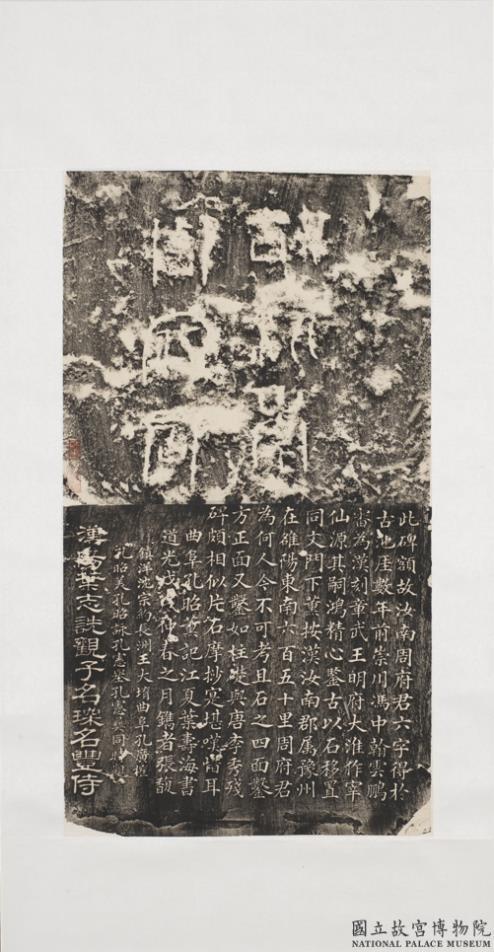 此碑額故汝南周府君六字得於
古
數年前崇川馮中翰雲鵬
審為漢刻董武王明府大淮作宰
仙源其嗣鴻精心鑒古以石移置
同文門下黃按漢汝南郡屬豫州
在雒陽東南六百五十里周府君
為何人今不可考且石之四面鑿
方正面又鑿如柱礎與唐李秀殘
碑頗相似片石摩抄寔堪嘆惜耳
曲阜孔昭薰記江夏葉壽海書
道光戊戌仲春之月鐫者張馥
鎮洋沈宗約長洲王大堉曲阜孔廣
孔昭美孔昭詠孔憲 孔憲 同
漢陽葉志詵觀子名琛名豐侍
國立故宮博物院
NATIONAL PALACE MUSEUM